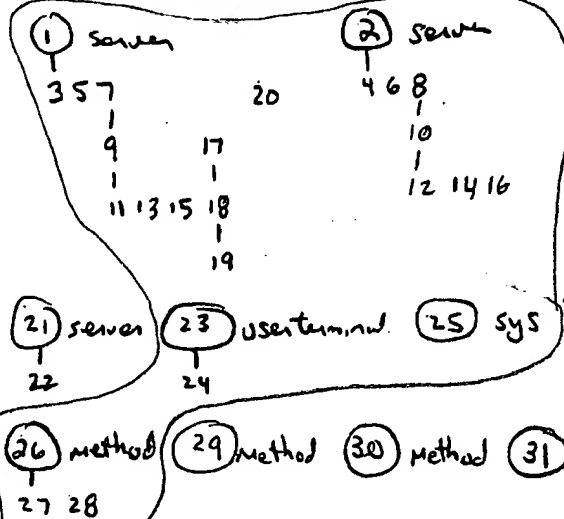 1 server 2 server
3 5 7 20 4 6 8
9 17 10
11 13 15 18 12 14 16
19
21 server 23 userterminal 25 sys
22 24
26 method 29 method 30 method 31
27 28